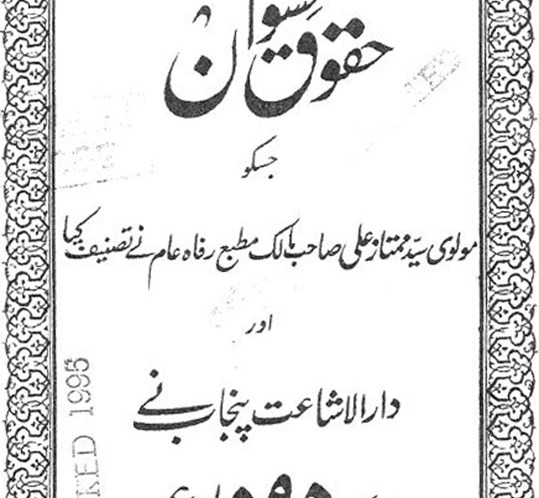 حقوق نسواں
جسکو
مولوی سیّد ممتاز علی صاحب مالک مطبع رفاہ عام نے تصنیف کیا
اور
دارالاشاعت پنجاب نے
KED 1995